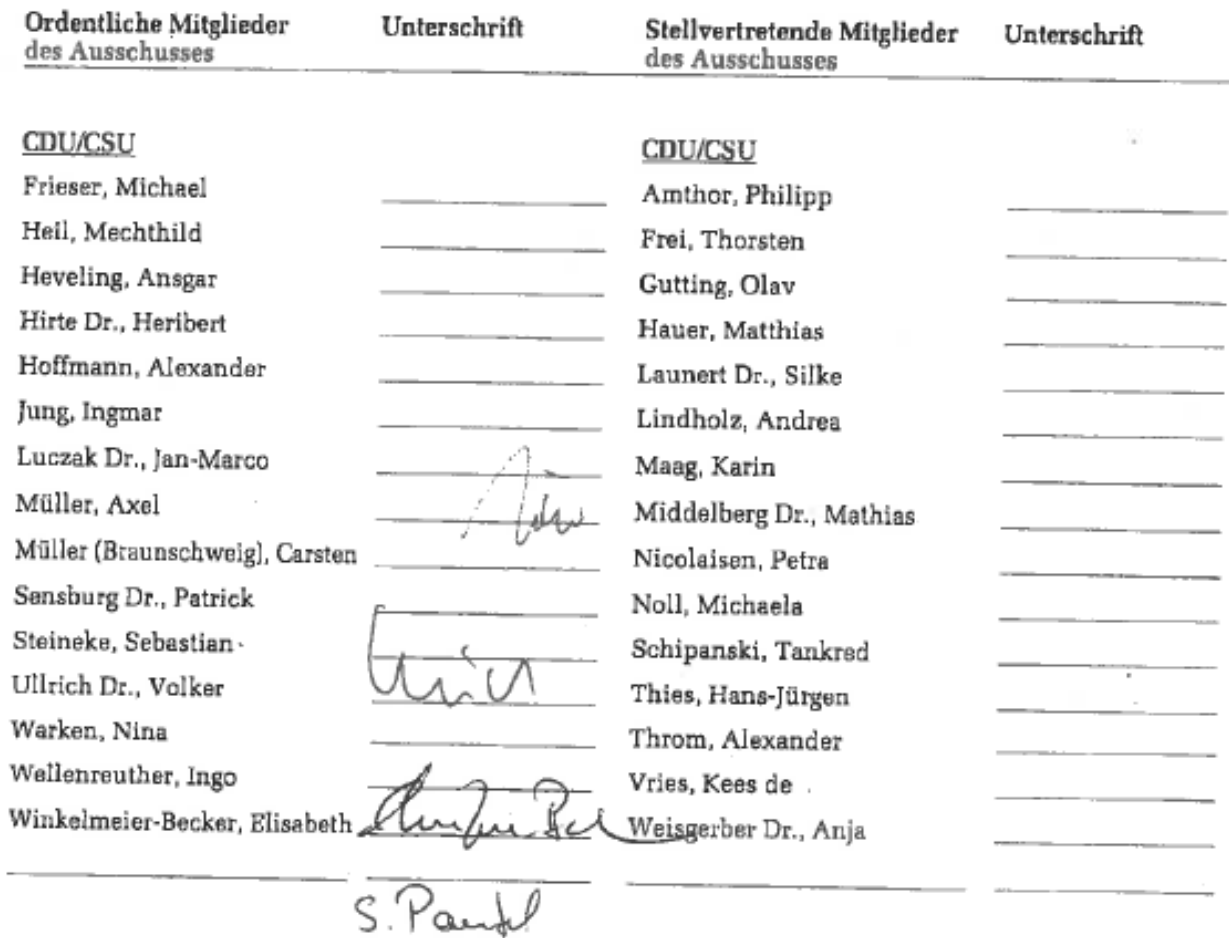 Ordentliche Mitglieder Unterschrift Stellvertretende Mitglieder Unterschrift
des Ausschusses des Ausschusses
CDU/CSU CDU/CSU
Frieser, Michael Amthor, Philipp
Heil, Mechthild Frei, Thorsten
Heveling, Ansgar Gutting, Olav
Hirte Dr., Heribert Hauer, Matthias
Hoffmann, Alexander Launert Dr., Silke
Jung, Ingmar Lindholz, Andrea
Luczak Dr., Jan-Marco Maag, Karin
Müller, Axel Middelberg Dr., Mathias
Müller (Braunschweig), Carsten Nicolaisen, Petra
Sensburg Dr., Patrick Noll, Michaela
Steineke, Sebastian Schipanski, Tankred
Ullrich Dr., Volker Thies, Hans-Jürgen
Warken, Nina Throm, Alexander
Wellenreuther, Ingo Vries, Kees de
Winkelmeier-Becker, Elisabeth Weisgerber Dr., Anja
S.